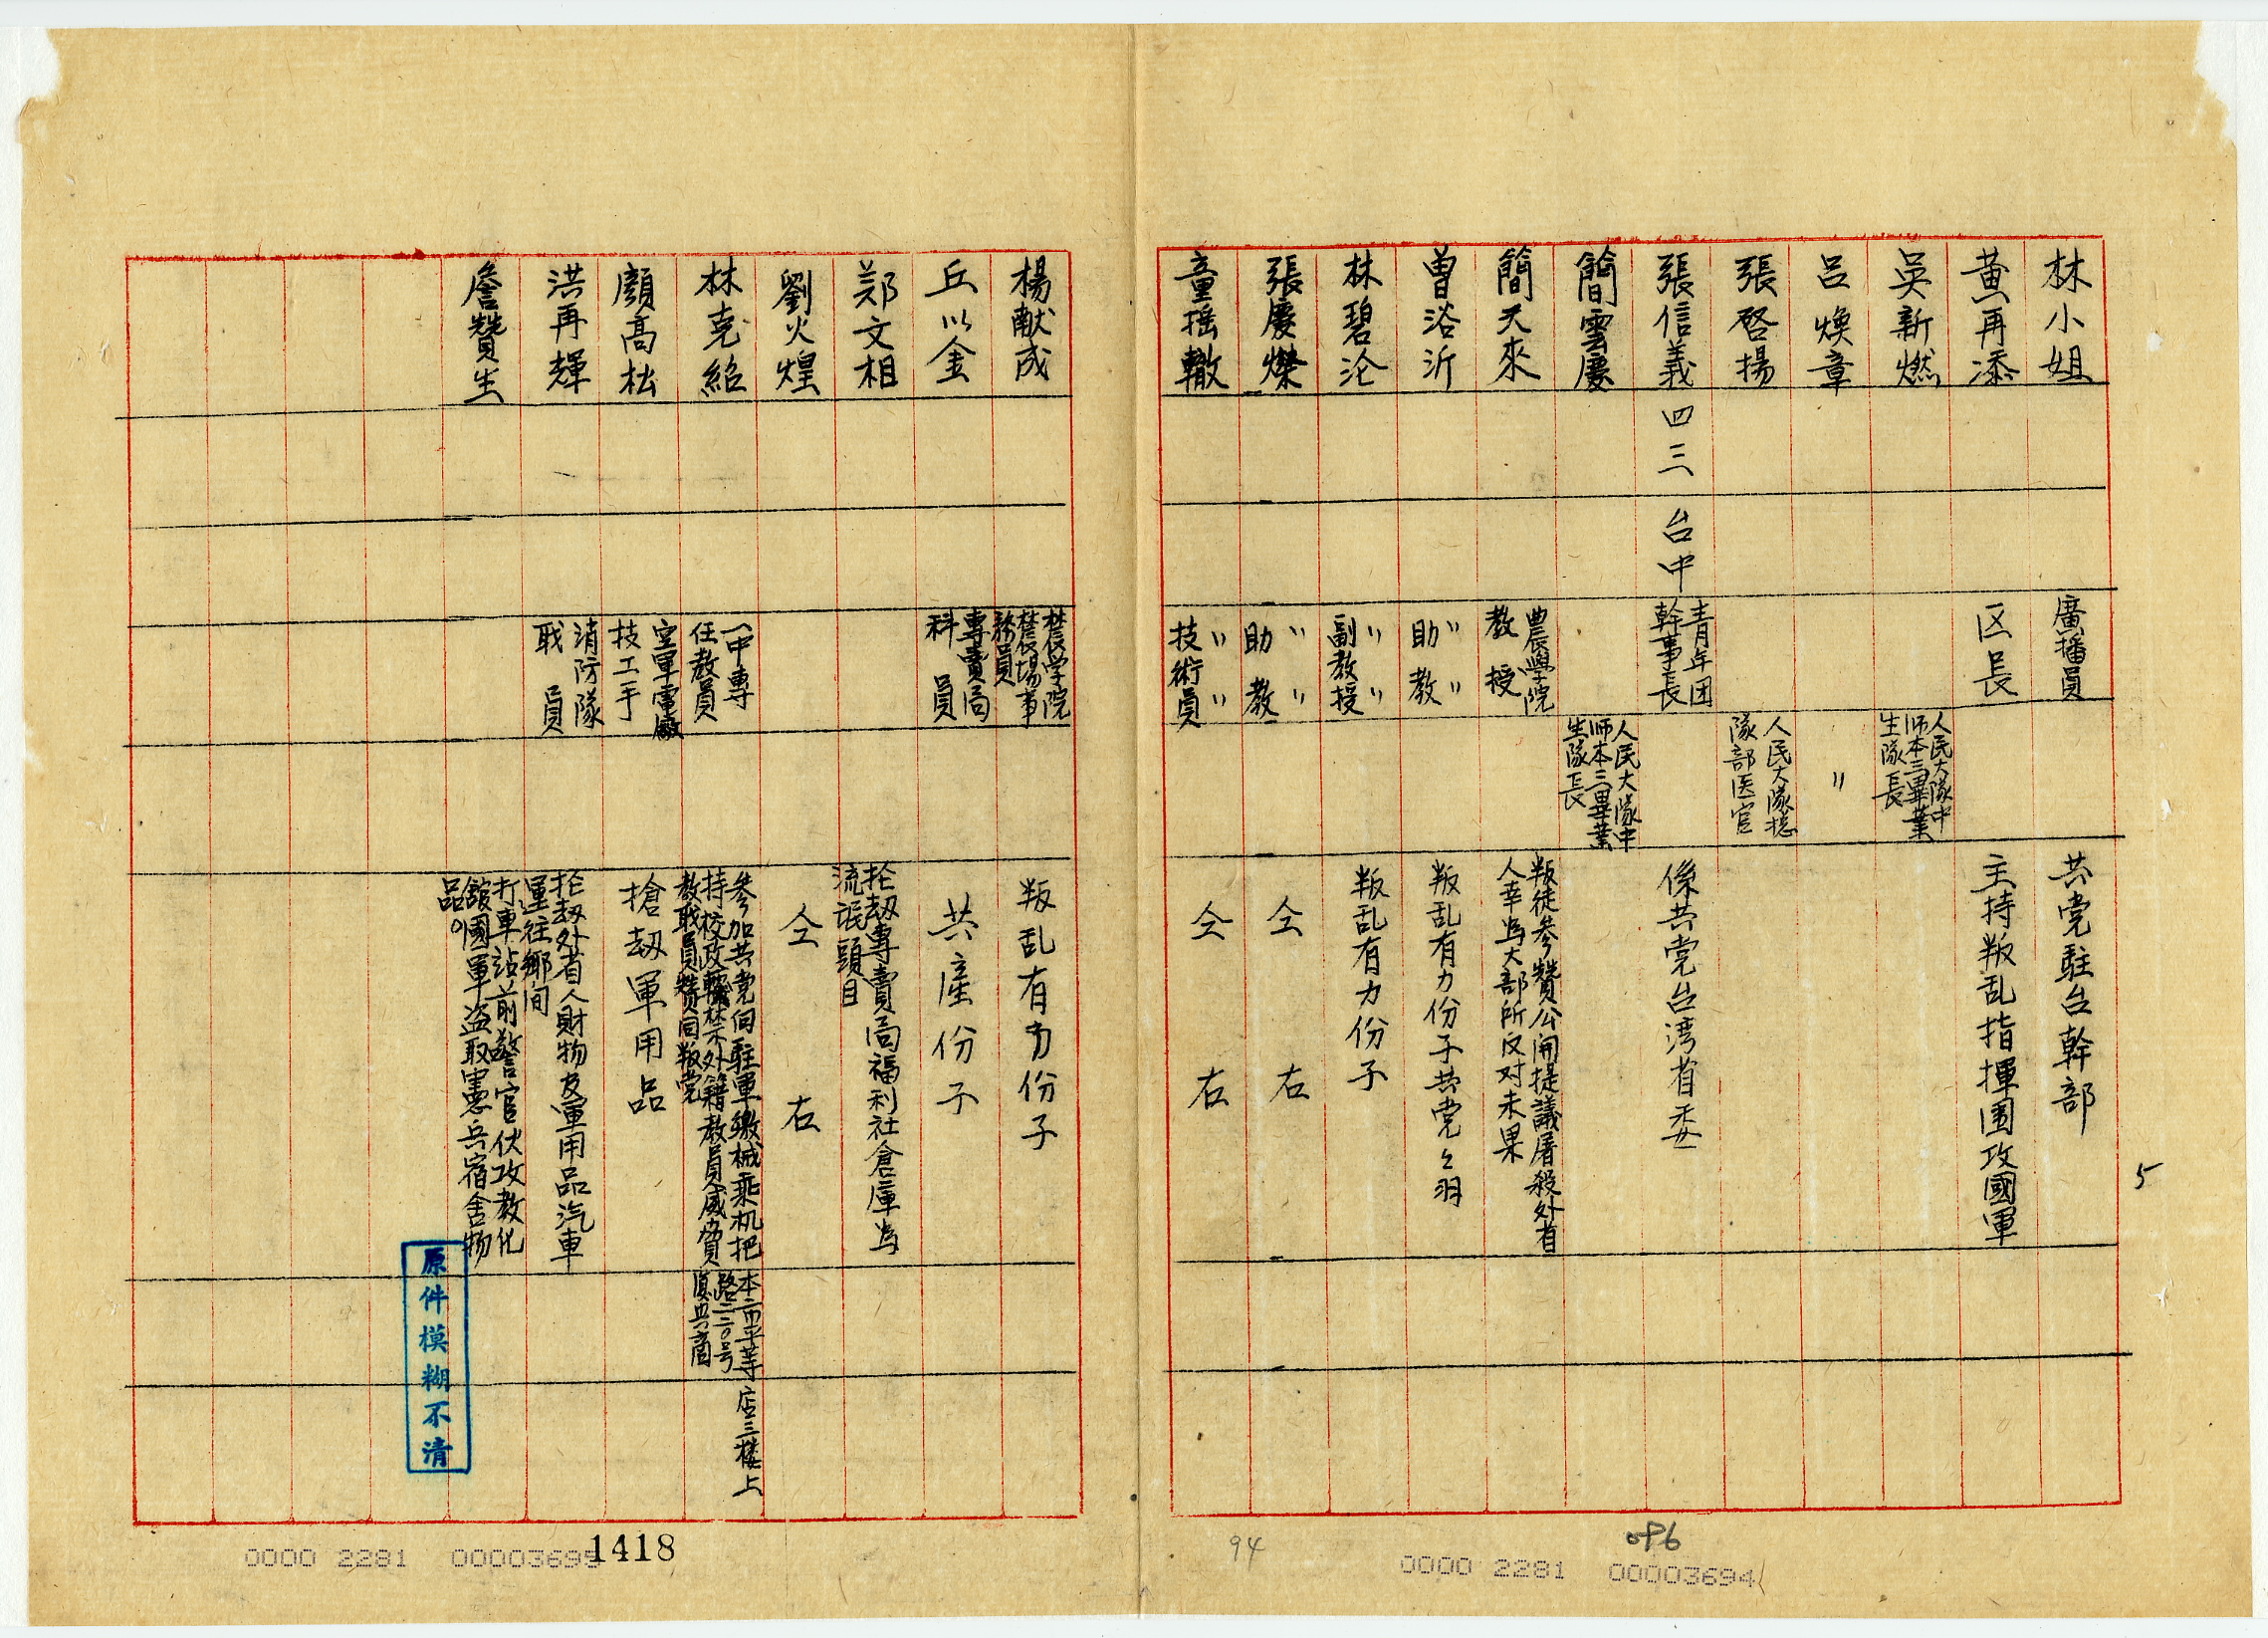 林小姐 廣播員 共党駐台幹部
黃再添 区長 主持叛乱指揮围攻國軍
吳新燃 人民大隊中
师本三畢業
生隊長
呂煥章 〃
張啓揚 人民大隊捴
隊部医官
張信義 四三 台中 青年团
幹事長 係共党台湾省委
簡雲慶 人民大隊中
师本三畢業
生隊長
簡天來 農學院
教授 叛徒參贊公開提議屠殺外省
人幸為大部所反対未果
曾浴沂 〃〃
助教 叛乱有力份子共党々羽
林碧沦 〃〃
副教授 叛乱有力份子
張慶燦 〃〃
助教 仝右
童摇轍 〃〃
技術員 仝右
5
楊献成 农学院
农場事
務員 叛乱有力份子
丘以金 專賣局
科員 共產份子
郑文相 抡刼專賣局福利社倉庫為
流氓頭目
劉火煌 仝右
林克紹 一中專
任教員 參加共党伺駐軍繳械乘机把
持校政禁外籍教員威脅
教职員賛同叛党 本市平等
路二二〇号
店三楼上
顏高松 空軍電廠
技工手 搶刼軍用品
洪再輝 消防隊
职員 抡刼外省人財物及軍用品汽車
運往鄉间
詹贊生 打車站前警官伏攻教化
館國軍盗取憲兵宿舍物
品。
原件模糊不清
0000 2281 00003695
1418
94
096
0000 2281 00003694